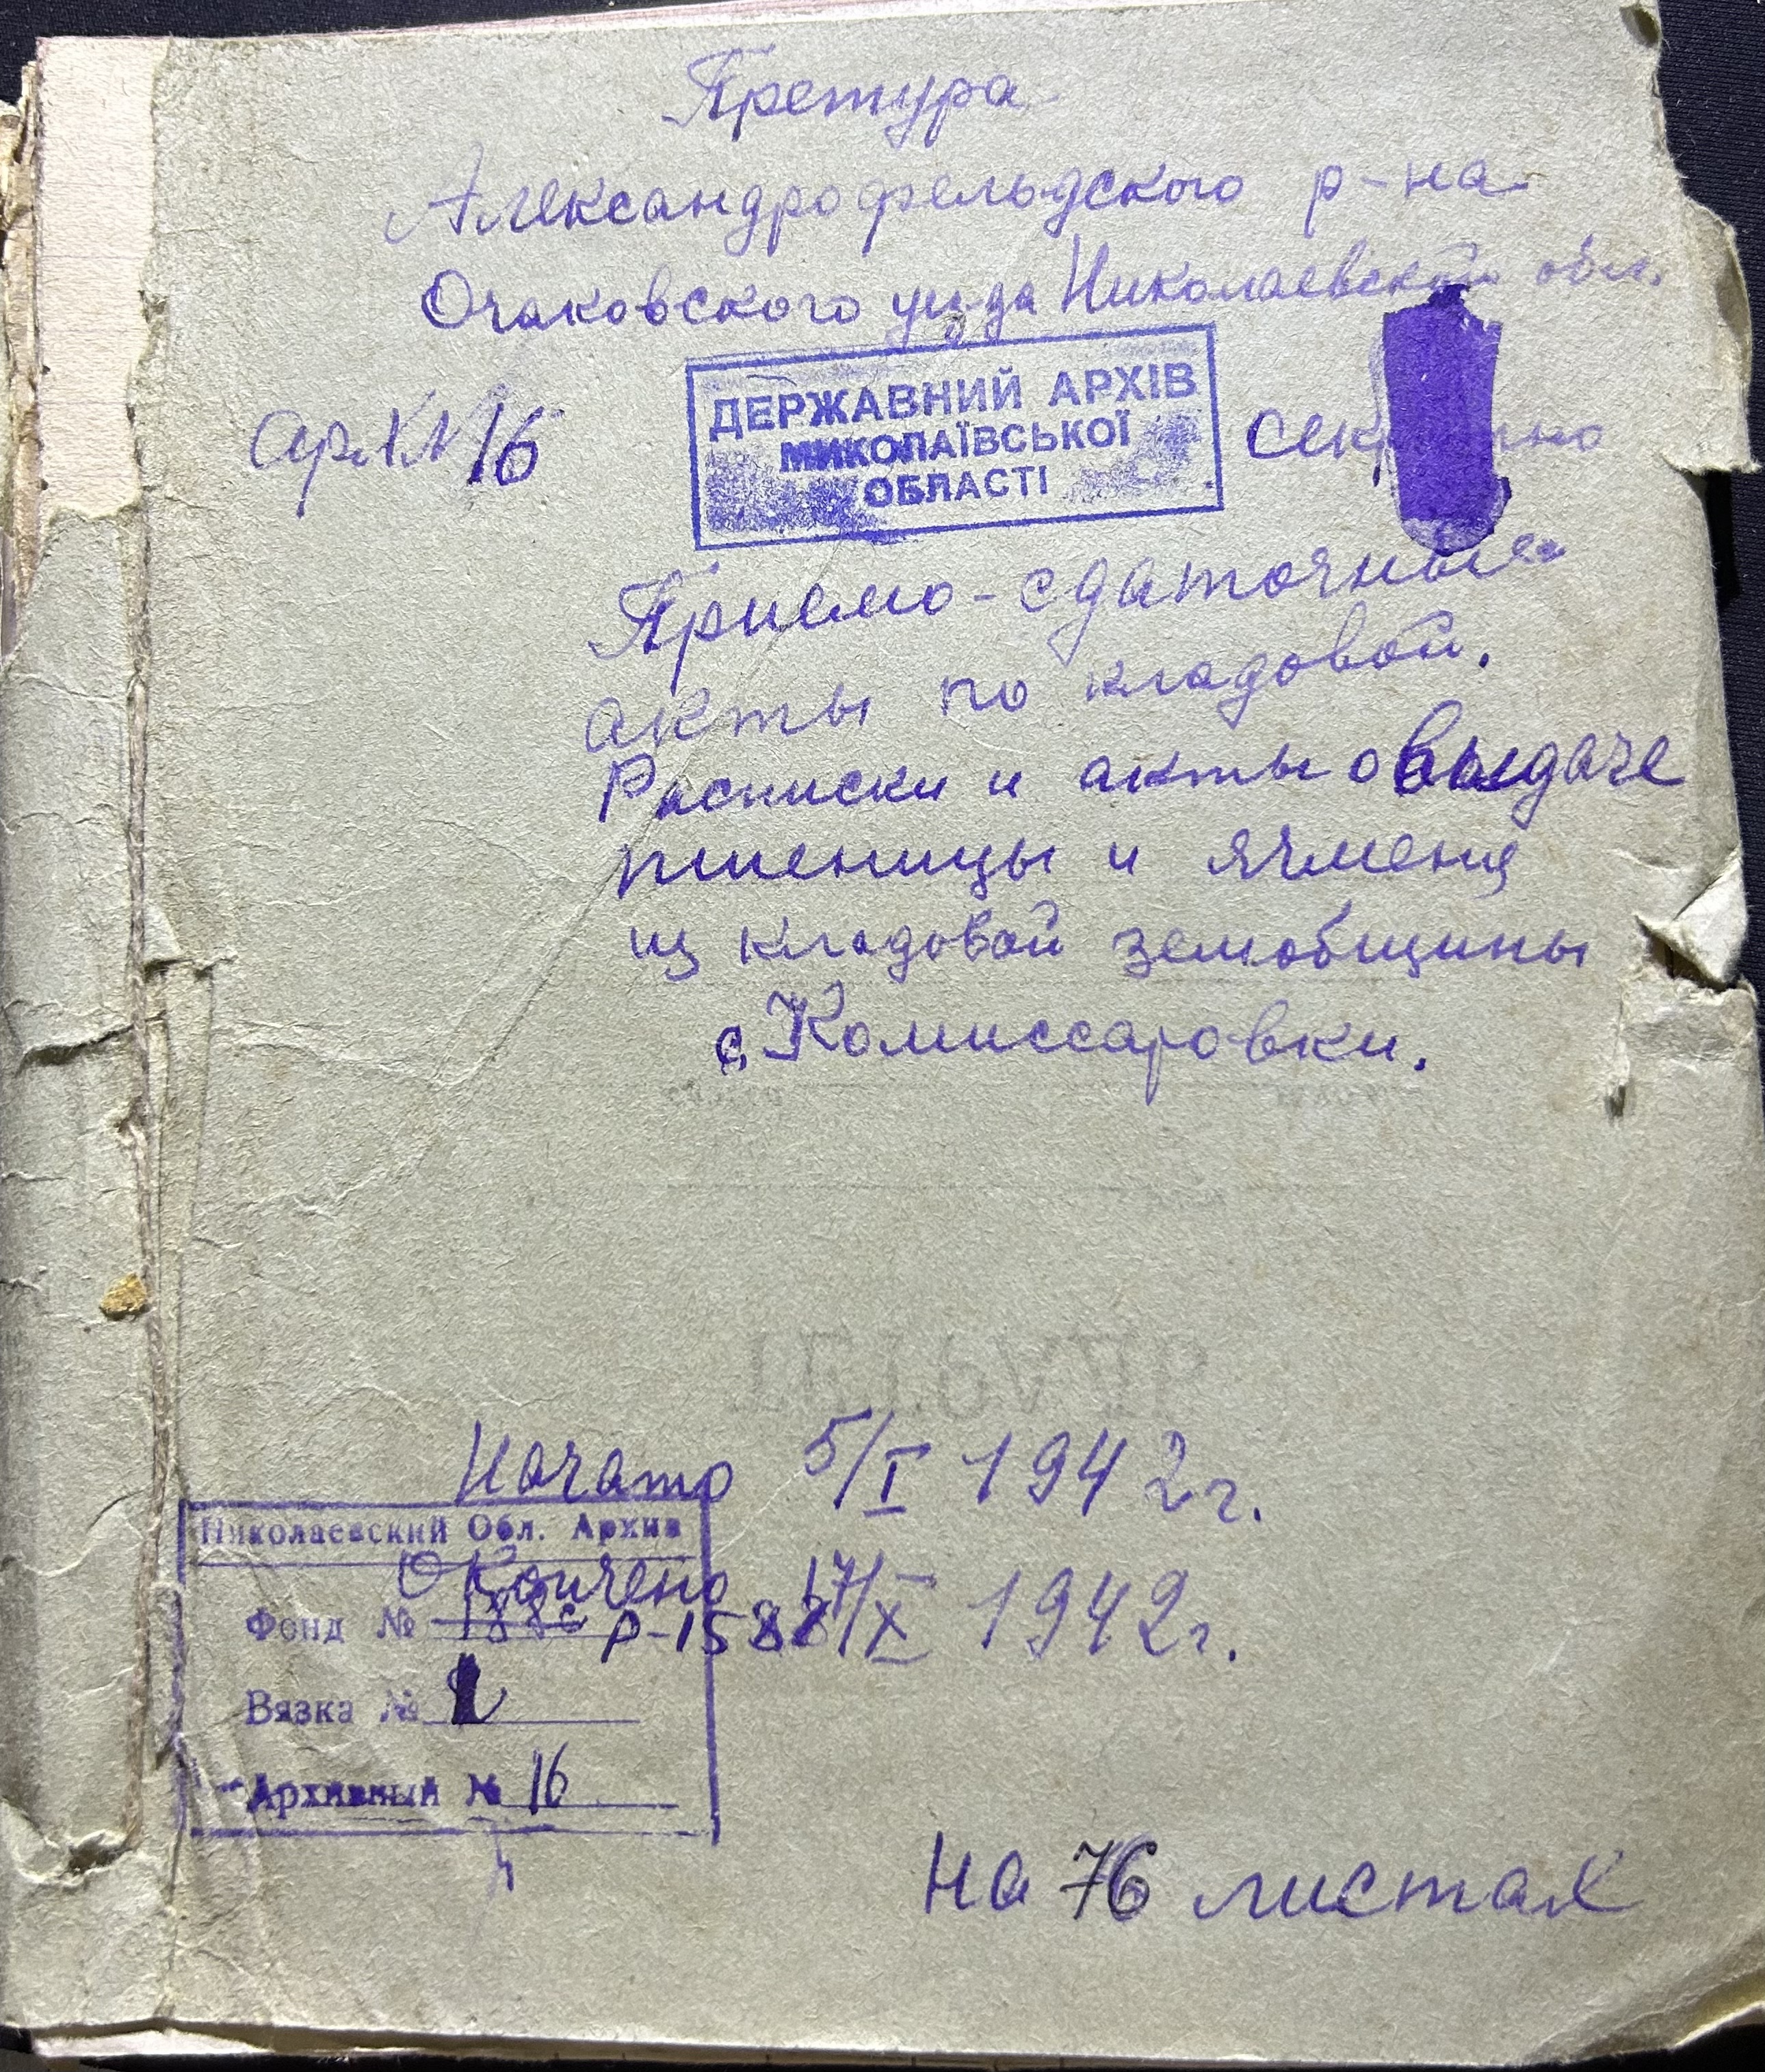 Претура
Александрофельдского р-на
Очаковского уезда Николаевской обл.
арх № 16
ДЕРЖАВНИЙ АРХІВ
МИКОЛАЇВСЬКОЇ
ОБЛАСТІ
Приемо-сдаточные
акты по кладовой.
Расписки и акты о выдаче
пшеницы и ячменя
из кладовой земобщины
с. Комиссаровки.
Начато 5/I 1942 г.
Николаевский Обл. Архив
Окончено 17/X 1942 г.
Фонд № Р-1588
Вязка №
Архивный № 16
на 76 листах